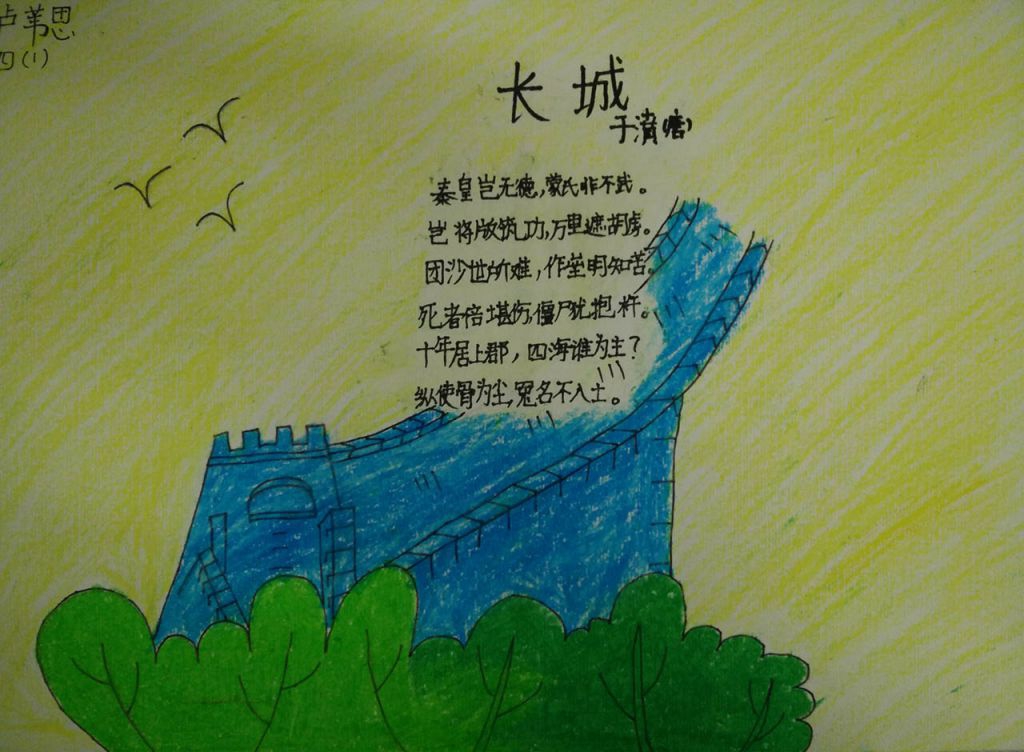 卢苇思
四(1)
长城
于濆(唐)
秦皇岂无德,蒙氏非不武。
岂将版筑功,万里遮胡虏。
团沙世所难,作垒明知苦。
死者倍堪伤,僵尸犹抱杵。
十年居上郡,四海谁为主?
纵使骨为尘,冤名不入土。